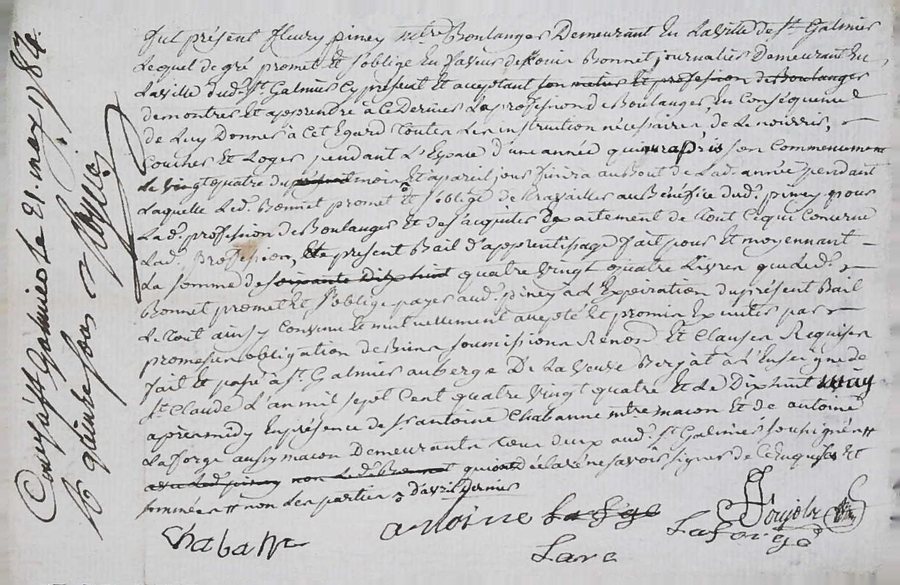 fut présent fleury piney mtre Boulanger Demeurant En La ville de St Galmier
Lequel de gré promet et s'oblige En faveur de Bonnet journalier Demeurant En
La ville dud. St Galmier cy présent et acceptant son metier Et profession de Boulanger
de montrer et apprendre à ce Dernier La profession de Boulanger, En Conséquence
de Luy Donner à cet Egard toutes Les instruction nécessaires, de Le nourrir,
Coucher Et Loger pendant L'Espace d'une année qui aura pris son Commencement
Le vingt quatre du mois et a pareil jour finira au bout de Lad. année pendant
Laquelle Led. Bonnet promet et s'oblige de travailler au Bénéfice dud. piney pour
Lad. profession de Boulanger Et de s'acquiter Exactement de tout ce qui Concerne
Lad. profession, Le présent Bail d'apprentissage fait pour Et moyennant
La somme de soixante Dix huit quatre vingt quatre Livres que Led.
Bonnet promet Et s'oblige payer aud. piney à L'Expiration du présent Bail
Le tout ainsy Convenu et mutuellement accepté Et promis Executer par
promesses obligation de Biens soumissions Renon. Et Clauses Requises
fait et passé à St Galmier auberge De La veuve Verjat à L'Enseigne de
St Claude L'an mil sept Cent quatre vingt quatre et Le Dix huit may
apres midy En présence de Sr antoine Chabanne mtre macon Et de antoine
Laforge aussy macon Demeurants tous deux aud. St Galmier soussignés
avec Led. piney non Led. Bonnet qui ont déclaré ne savoir signer de ce Enquis Et
sommés non Les parties d'avril Dernier
Chabane
antoine Laforge
Lare
Laforge
Poujols
Con. à St Galmier Le 21. may 1784.
R quinze sous